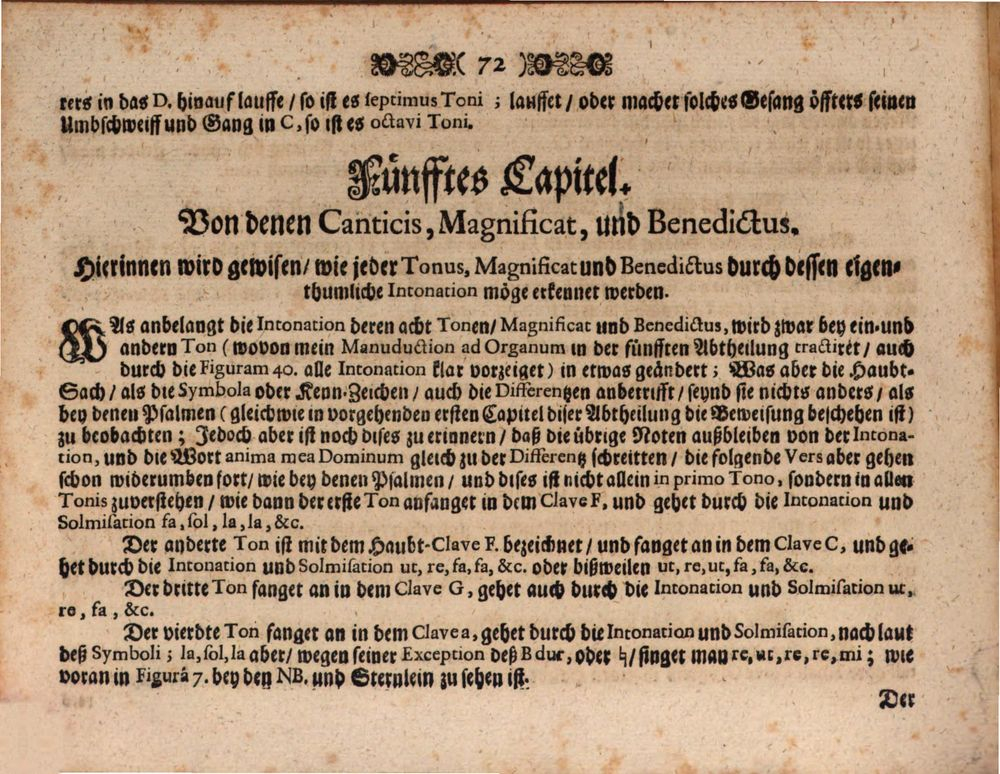 ( 72 )
rers in das D. hinauf lauffe / so ist es septimus Toni ; lauffet / oder machet solches Gesang öffters seinen
Umbschweiff und Gang in C, so ist es octavi Toni.
Fünfftes Capitel.
Von denen Canticis, Magnificat, und Benedictus.
Hierinnen wird gewisen / wie jeder Tonus, Magnificat und Benedictus durch dessen eigen-
thumliche Intonation möge erkennet werden.
WAs anbelangt die Intonation deren acht Tonen / Magnificat und Benedictus, wird zwar bey ein- und
andern Ton ( wovon mein Manuduction ad Organum in der fünfften Abtheilung tractiret / auch
durch die Figuram 40. alle Intonation klar vorzeiget ) in etwas geändert ; Was aber die Haubt-
Sach / als die Symbola oder Kenn-Zeichen / auch die Differentzen anberrifft / seynd sie nichts anders / als
bey denen Psalmen ( gleichwie in vorgehenden ersten Capitel diser Abtheilung die Beweisung beschehen ist )
zu beobachten ; Jedoch aber ist noch dises zu erinnern / daß die übrige Noten außbleiben von der Intona-
tion, und die Wort anima mea Dominum gleich zu der Differentz schreitten / die folgende Vers aber gehen
schon widerumben fort / wie bey denen Psalmen / und dises ist nicht allein in primo Tono, sondern in allen
Tonis zuverstehen / wie dann der erste Ton anfanget in dem Clave F. und gehet durch die Intonation und
Solmisation fa, sol, la, la, &c.
Der anderte Ton ist mit dem Haubt-Clave F. bezeichnet / und fanget an in dem Clave C, und ge-
het durch die Intonation und Solmisation ut, re, fa, fa, &c. oder bißweilen ut, re, ut, fa, fa, &c.
Der dritte Ton fanget an in dem Clave G, gehet auch durch die Intonation und Solmisation ut,
re, fa, &c.
Der vierdte Ton fanget an in dem Clave a, gehet durch die Intonation und Solmisation, nach laut
deß Symboli ; la, sol, la aber / wegen seiner Exception deß B dur, oder ♮ / singet man re, ut, re, re, mi ; wie
voran in Figurâ 7. bey den NB. und Sternlein zu sehen ist.
Der